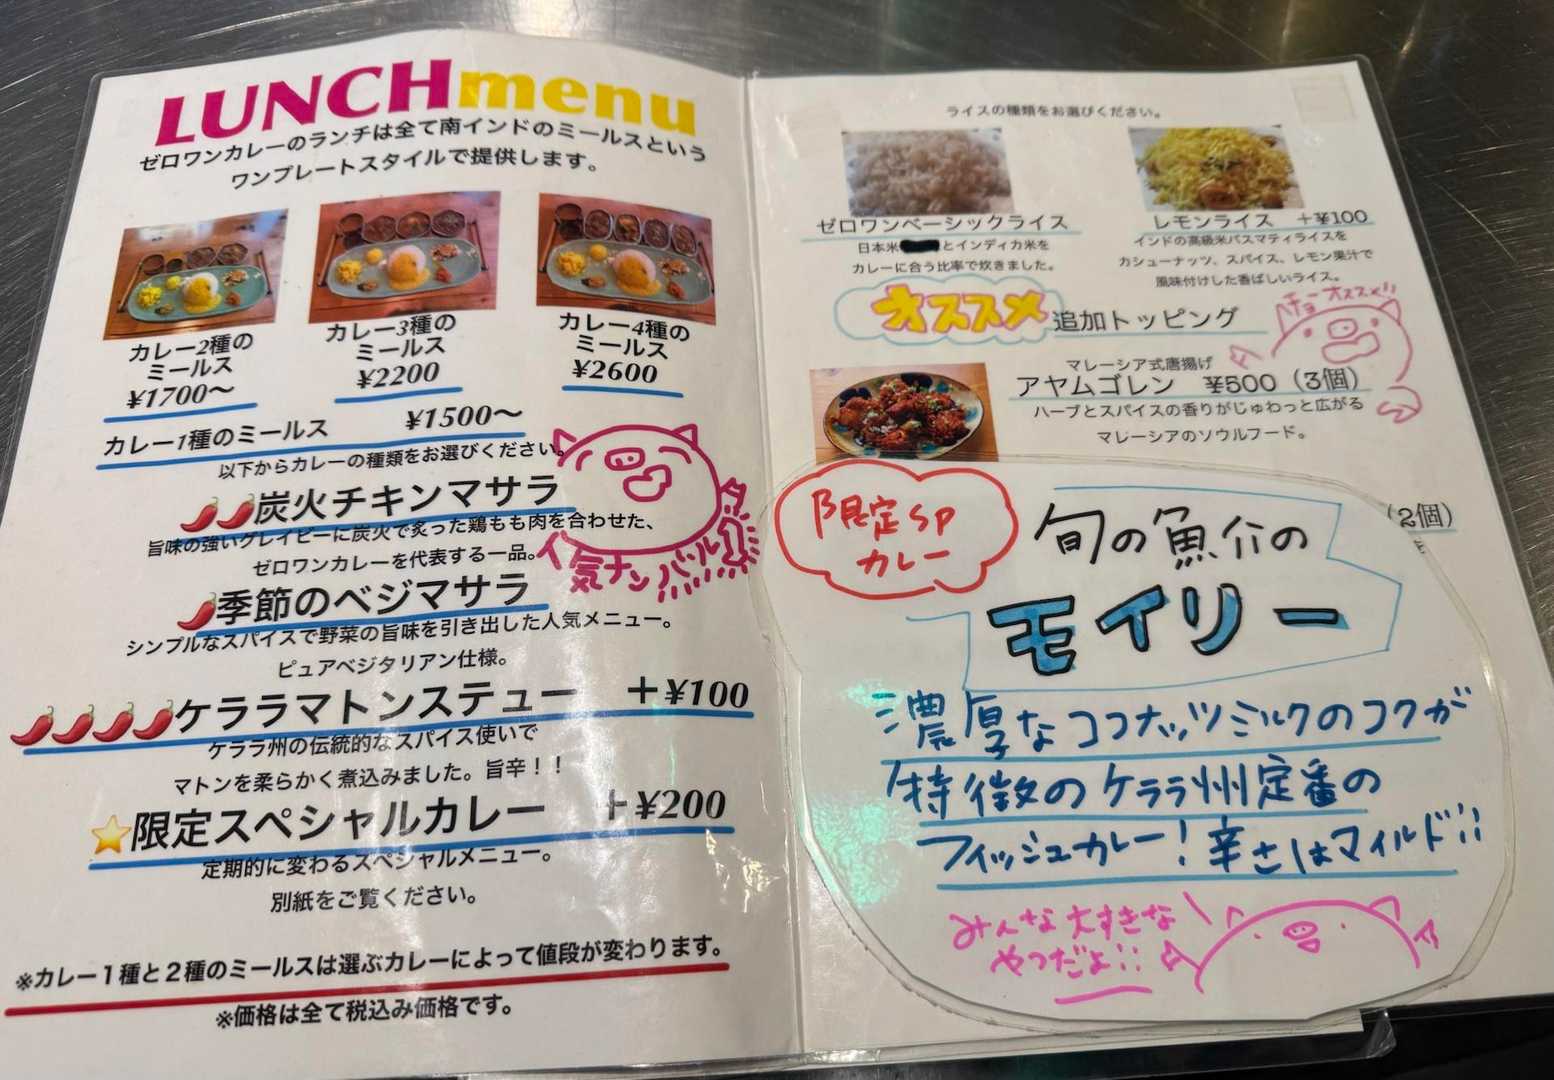 LUNCH menu
ゼロワンカレーのランチは全て南インドのミールスという
ワンプレートスタイルで提供します。
カレー2種の
ミールス
¥1700〜
カレー3種の
ミールス
¥2200
カレー4種の
ミールス
¥2600
カレー1種のミールス ¥1500〜
以下からカレーの種類をお選びください。
炭火チキンマサラ
旨味の強いグレイビーに炭火で炙った鶏もも肉を合わせた、
ゼロワンカレーを代表する一品。
人気ナンバー1
季節のベジマサラ
シンプルなスパイスで野菜の旨味を引き出した人気メニュー。
ピュアベジタリアン仕様。
ケララマトンステュー +¥100
ケララ州の伝統的なスパイス使いで
マトンを柔らかく煮込みました。旨辛！！
限定スペシャルカレー +¥200
定期的に変わるスペシャルメニュー。
別紙をご覧ください。
※カレー１種と２種のミールスは選ぶカレーによって値段が変わります。
※価格は全て税込み価格です。
ライスの種類をお選びください。
ゼロワンベーシックライス
日本米 とインディカ米を
カレーに合う比率で炊きました。
レモンライス +¥100
インドの高級米バスマティライスを
カシューナッツ、スパイス、レモン果汁で
風味付けした香ばしいライス。
オススメ 追加トッピング
チョーオススメ!!
マレーシア式唐揚げ
アヤムゴレン ¥500（3個）
ハーブとスパイスの香りがじゅわっと広がる
マレーシアのソウルフード。
（2個）
限定SP
カレー
旬の魚介の
モイリー
濃厚なココナッツミルクのコクが
特徴のケララ州定番の
フィッシュカレー！辛さはマイルド!!
みんな大すきな
やつだよ!!